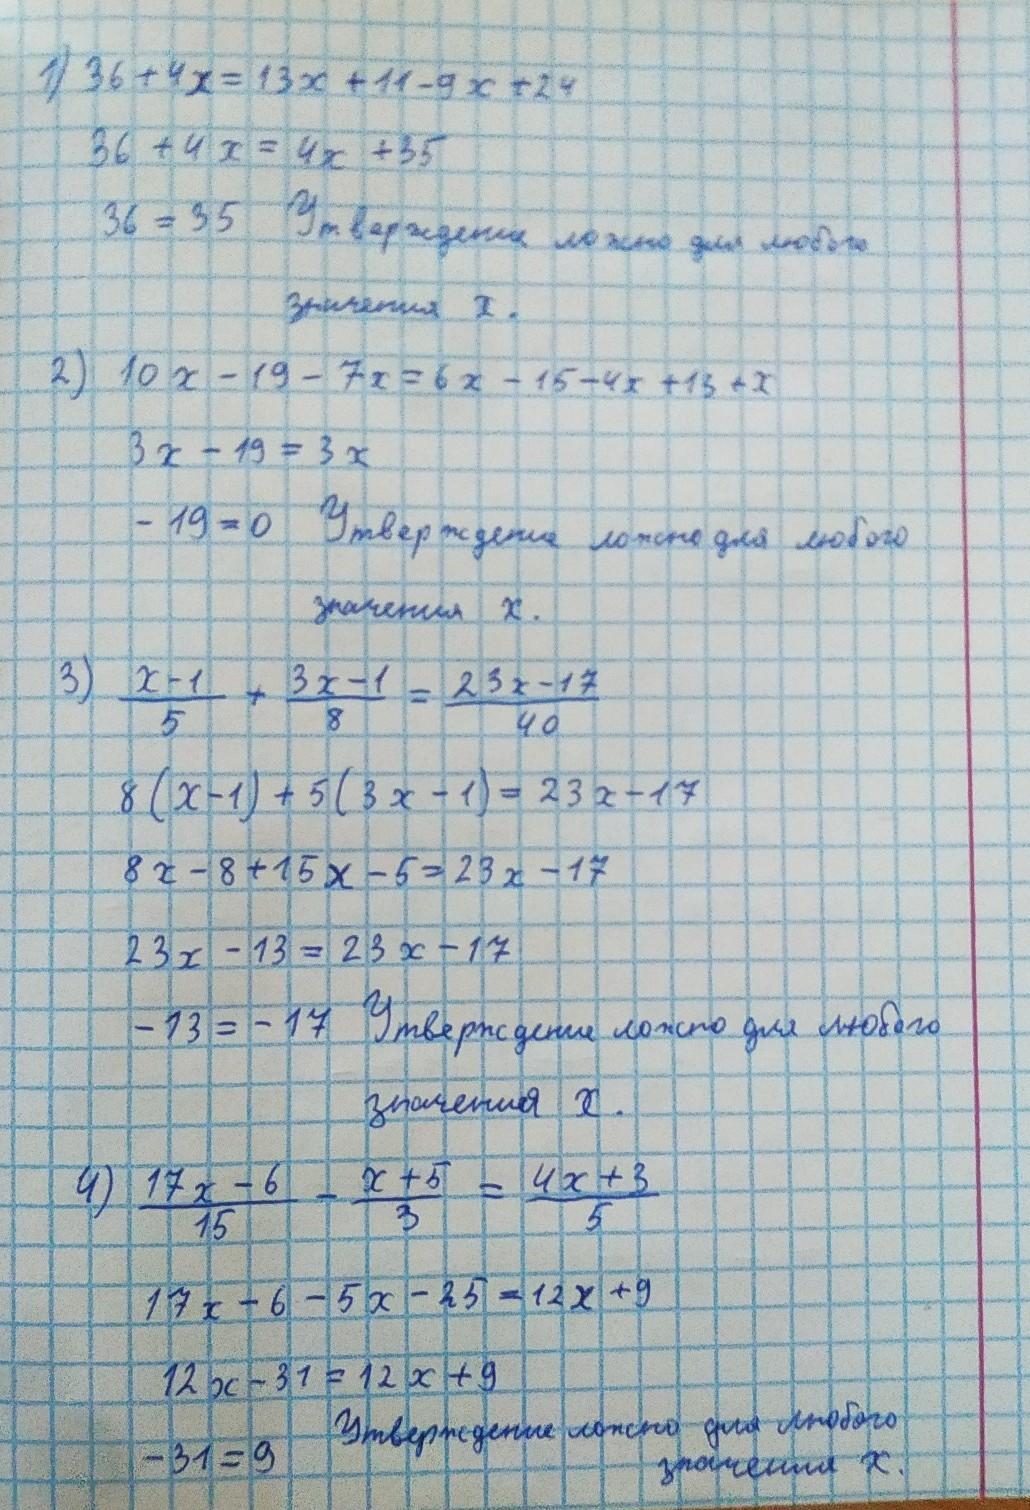 1) 36+4x=13x+11-9x+24
36+4x=4x+35
36=35 Утверждение ложно для любого
значения x.
2) 10x-19-7x=6x-15-4x+13+x
3x-19=3x
-19=0 Утверждение ложно для любого
значения x.
3) (x-1)/5 + (3x-1)/8 = (23x-17)/40
8(x-1)+5(3x-1)=23x-17
8x-8+15x-5=23x-17
23x-13=23x-17
-13=-17 Утверждение ложно для любого
значения x.
4) (17x-6)/15 - (x+5)/3 = (4x+3)/5
17x-6-5x-25=12x+9
12x-31=12x+9
-31=9 Утверждение ложно для любого
значения x.